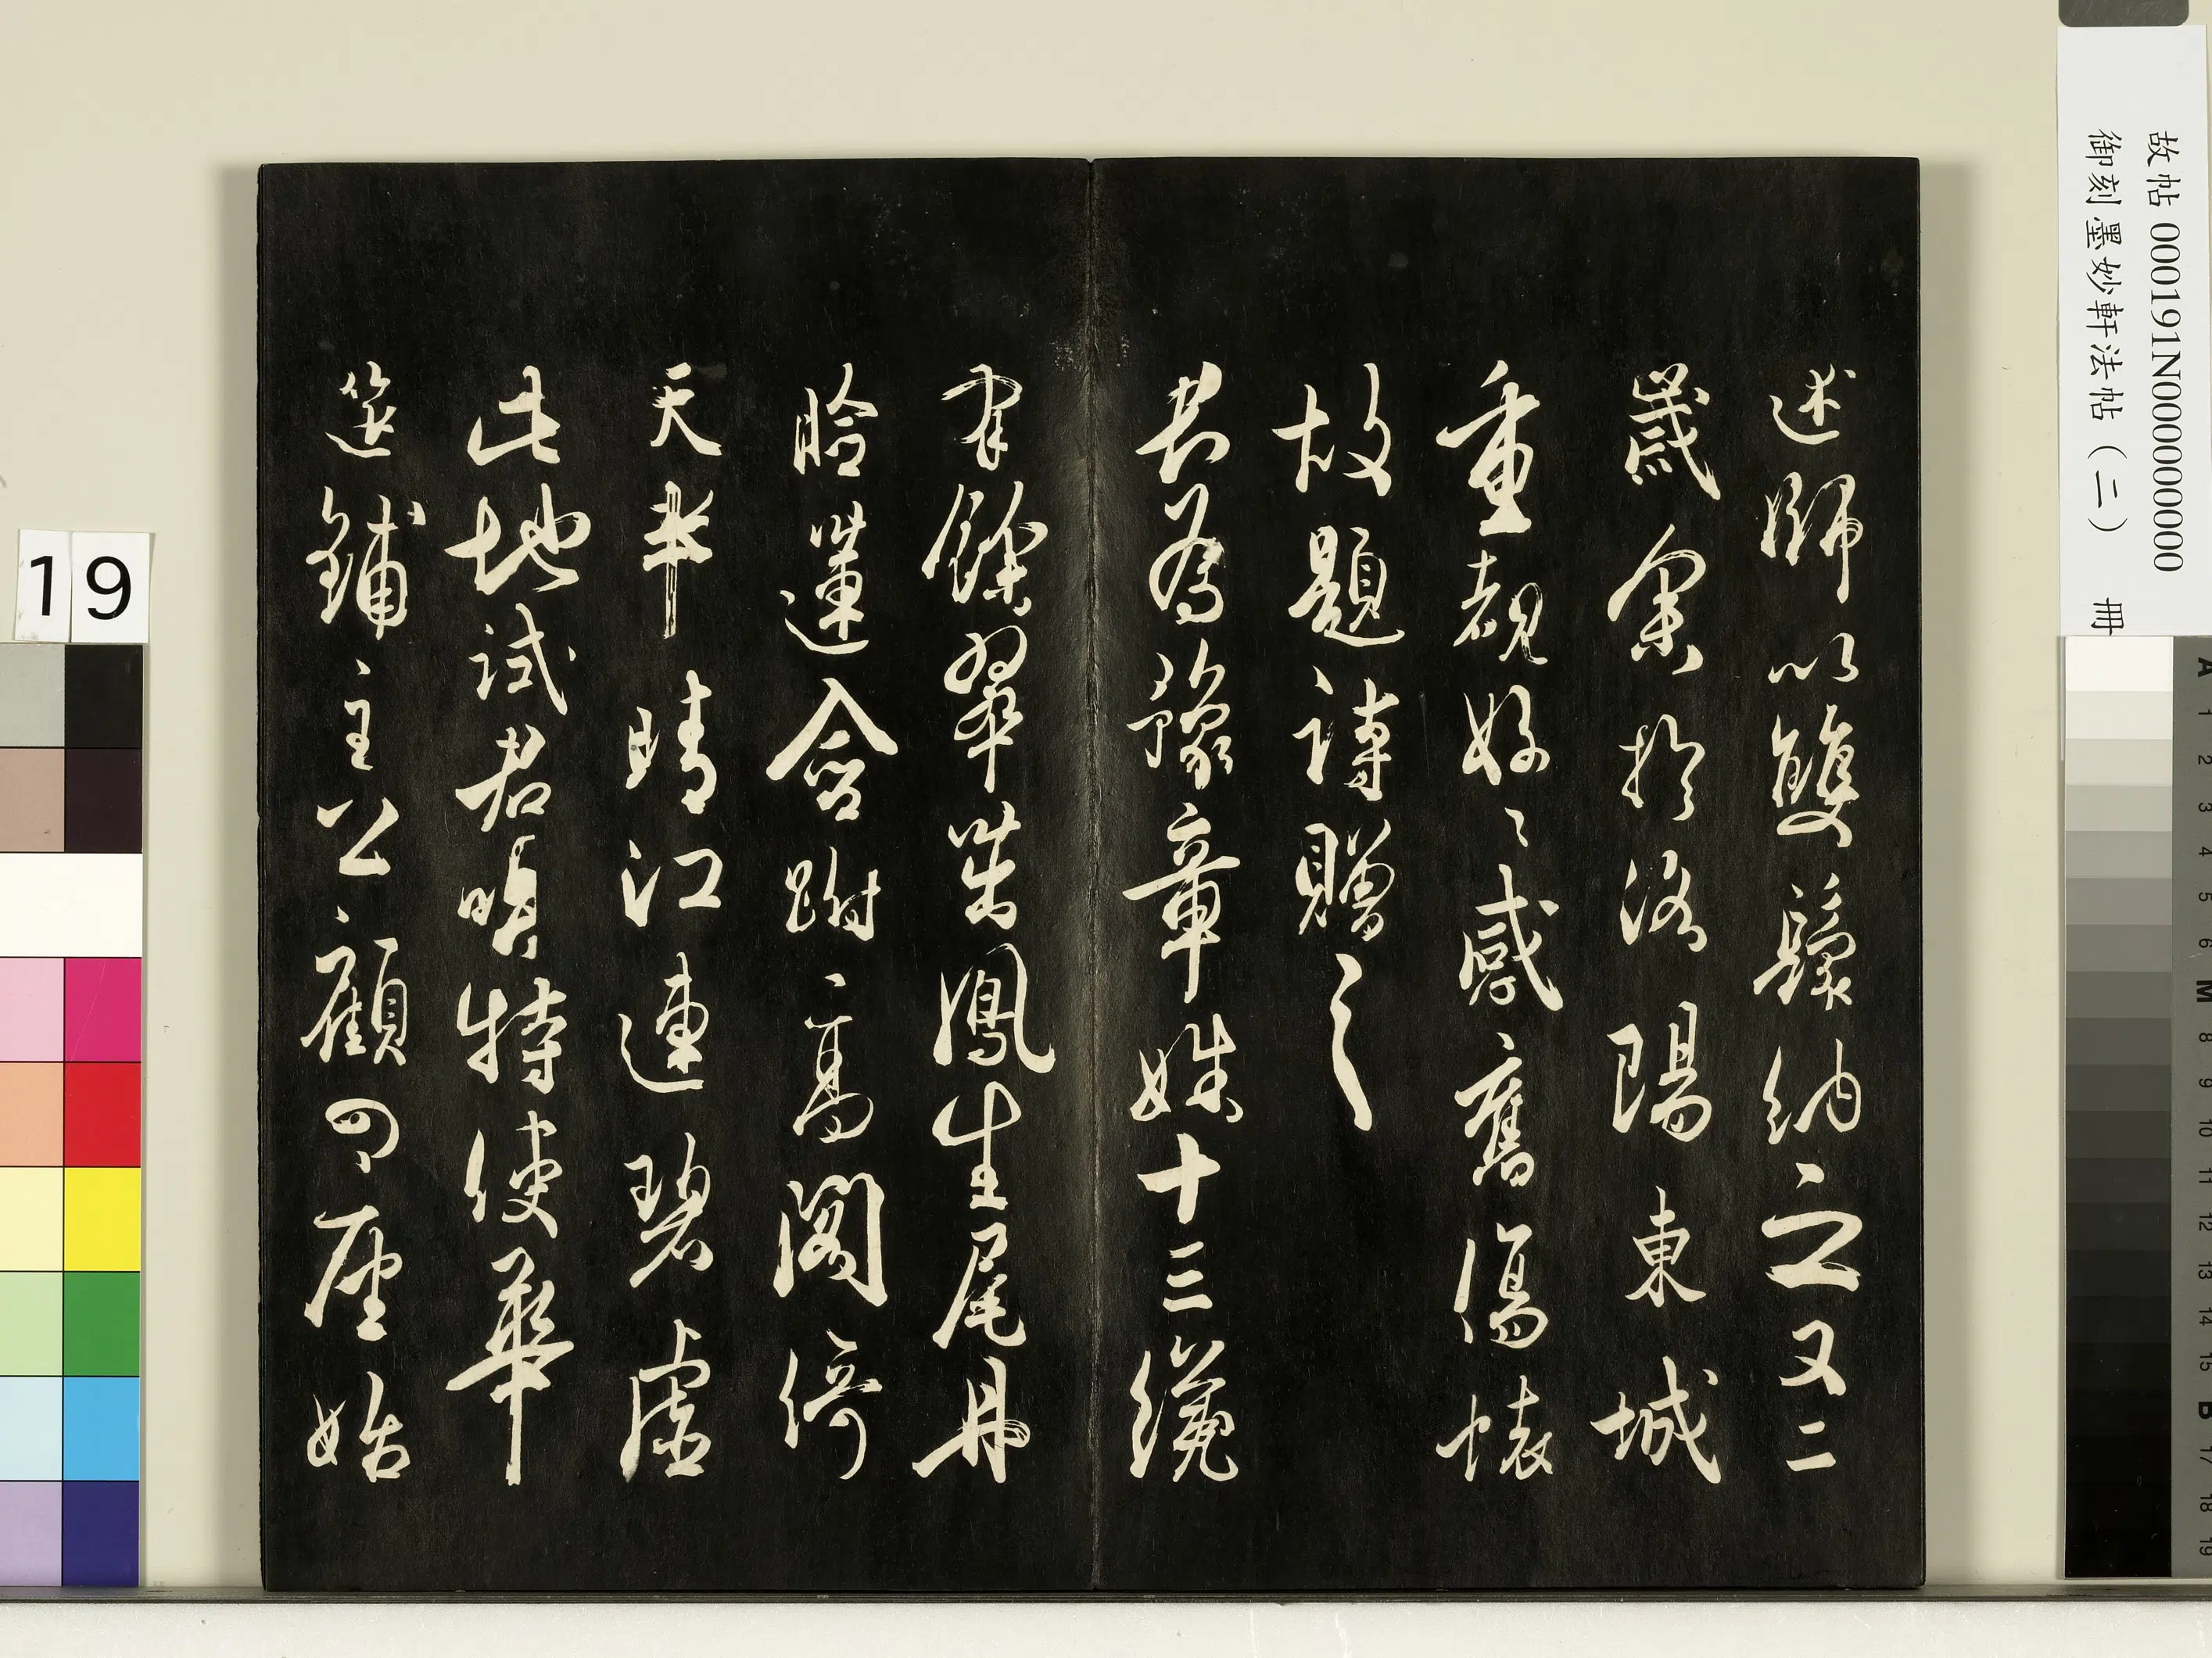 述師以雙鬟納之又二
歲余於洛陽東城
重覩好〻感舊傷懷
故題詩贈之
君為豫章姝十三纔
有餘翠茁鳳生尾丹
臉蓮含跗高閣倚
天半晴江連碧虛
此地試君唱特使華
筵鋪主公顧四座始
故帖 000191N000000000
御刻墨妙軒法帖（二） 冊
19
A 1 2 3 4 5 6 M 8 9 10 11 12 13 14 15 B 17 18 19